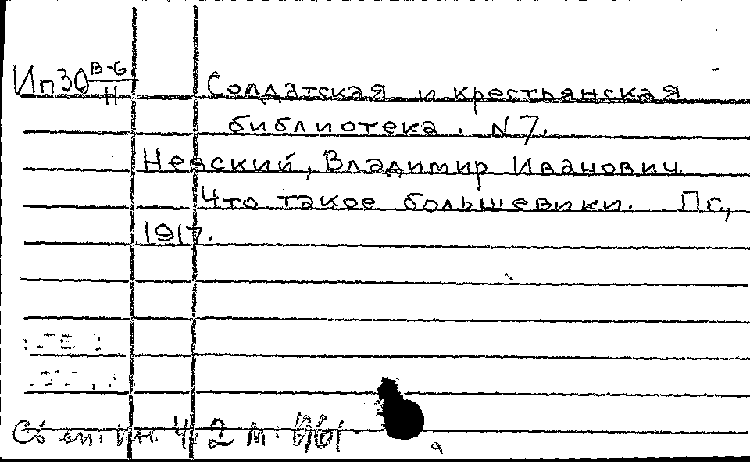 Ип30 В-6/Н Солдатская и крестьянская
библиотека. N 7.
Невский, Владимир Иванович.
Что такое большевики. Пг.,
1917.
2 м.